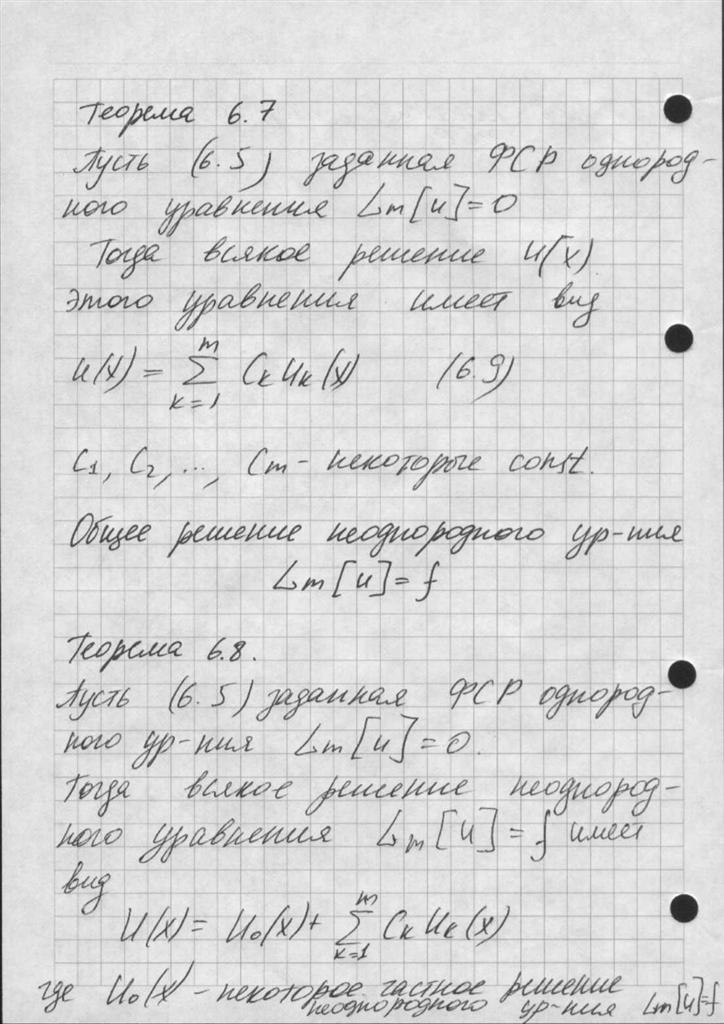 Теорема 6.7
Пусть (6.5) заданная ФСР однород-
ного уравнения Lm[u]=0
Тогда всякое решение u(x)
этого уравнения имеет вид
m
u(x) = ∑ Cк Uк(x) (6.9)
к=1
C1, C2, ..., Cm - некоторые const.
Общее решение неоднородного ур-ния
Lm[u]=f
Теорема 6.8.
Пусть (6.5) заданная ФСР однород-
ного ур-ния Lm[u]=0.
Тогда всякое решение неоднород-
ного уравнения Lm[u]=f имеет
вид
m
U(x)= U0(x)+ ∑ Cк Uк(x)
к=1
где U0(x) - некоторое частное решение
неоднородного ур-ния Lm[u]=f